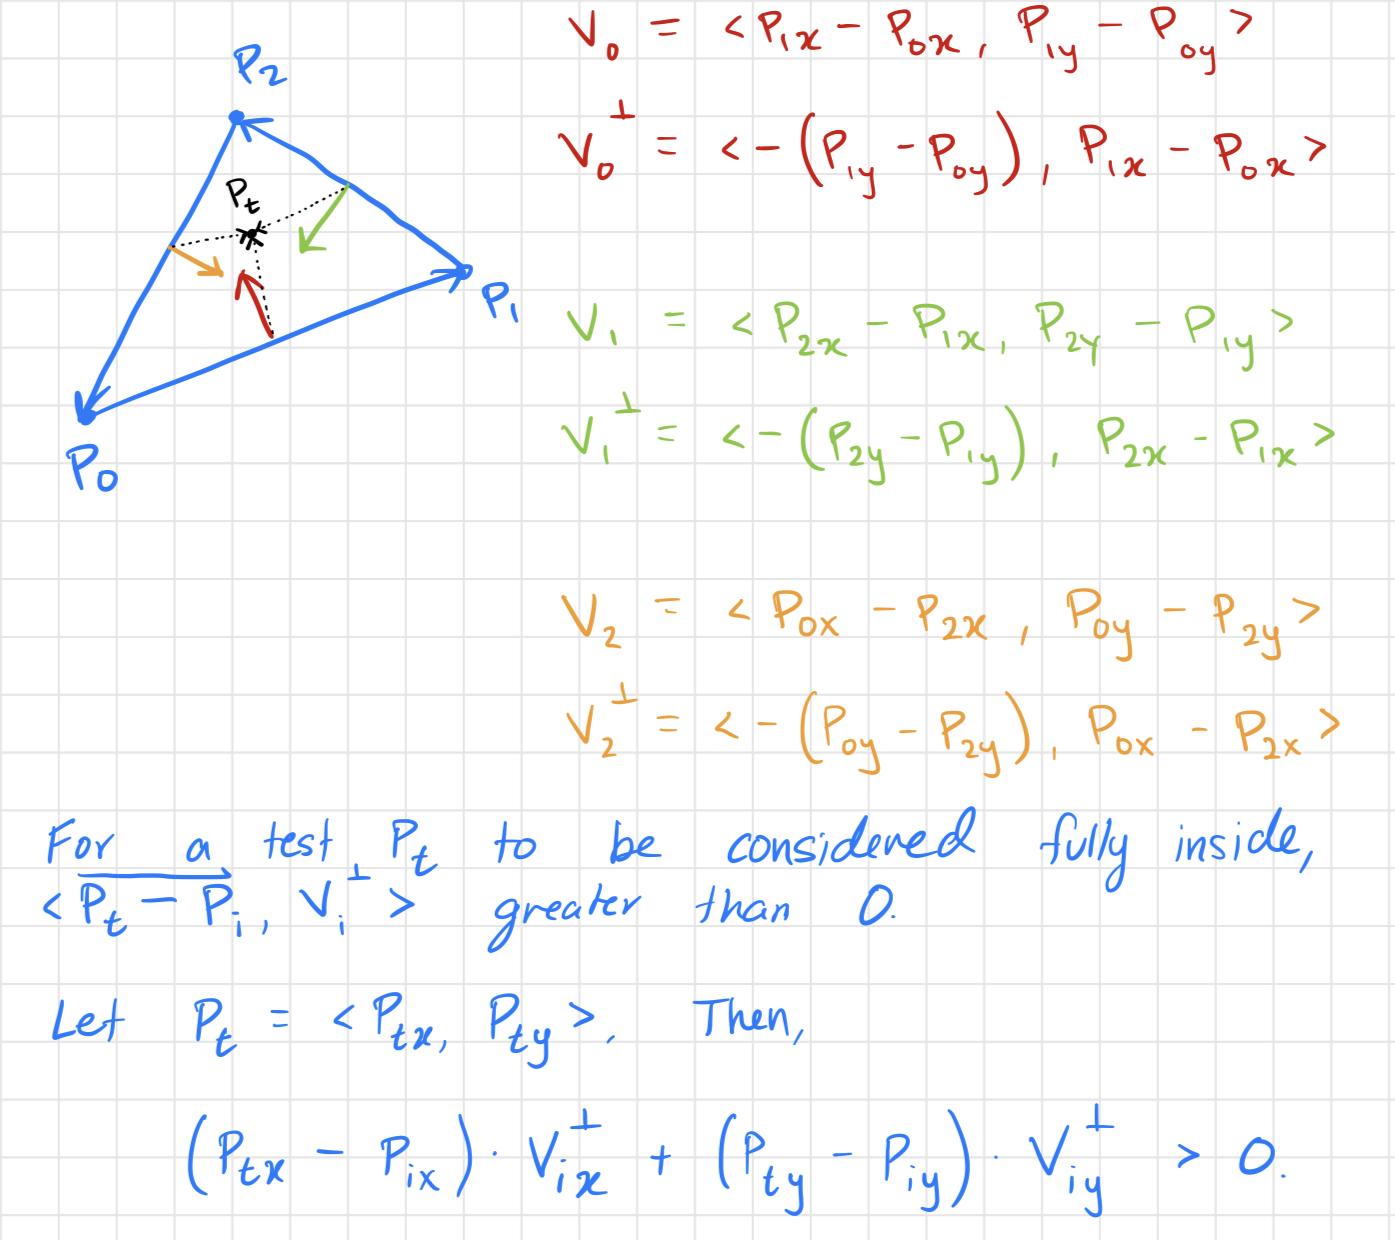 P₂
Pₜ
P₁
P₀
V₀ = <P₁ₓ - P₀ₓ, P₁y - P₀y>
V₀^⊥ = <-(P₁y - P₀y), P₁ₓ - P₀ₓ>
V₁ = <P₂ₓ - P₁ₓ, P₂y - P₁y>
V₁^⊥ = <-(P₂y - P₁y), P₂ₓ - P₁ₓ>
V₂ = <P₀ₓ - P₂ₓ, P₀y - P₂y>
V₂^⊥ = <-(P₀y - P₂y), P₀ₓ - P₂ₓ>
For a test Pₜ to be considered fully inside,
<Pₜ - Pᵢ, Vᵢ^⊥> greater than 0.
Let Pₜ = <Pₜₓ, Pₜy>. Then,
(Pₜₓ - Pᵢₓ) · Vᵢₓ^⊥ + (Pₜy - Pᵢy) · Vᵢy^⊥ > 0.